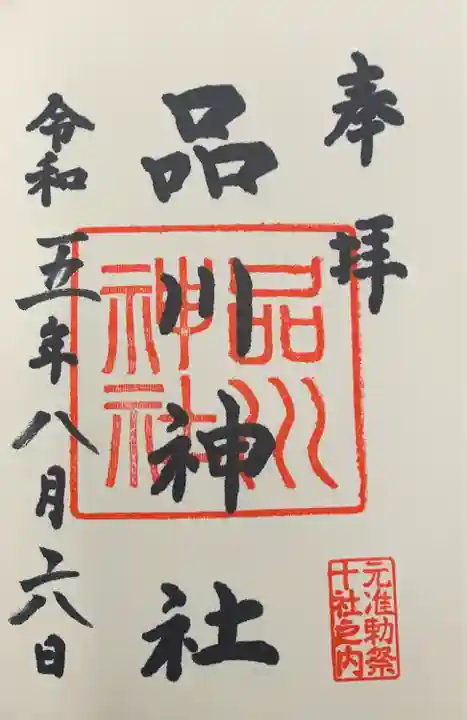 奉拝
品川神社
品川
神社
元准勅祭
十社之内
令和五年八月六日